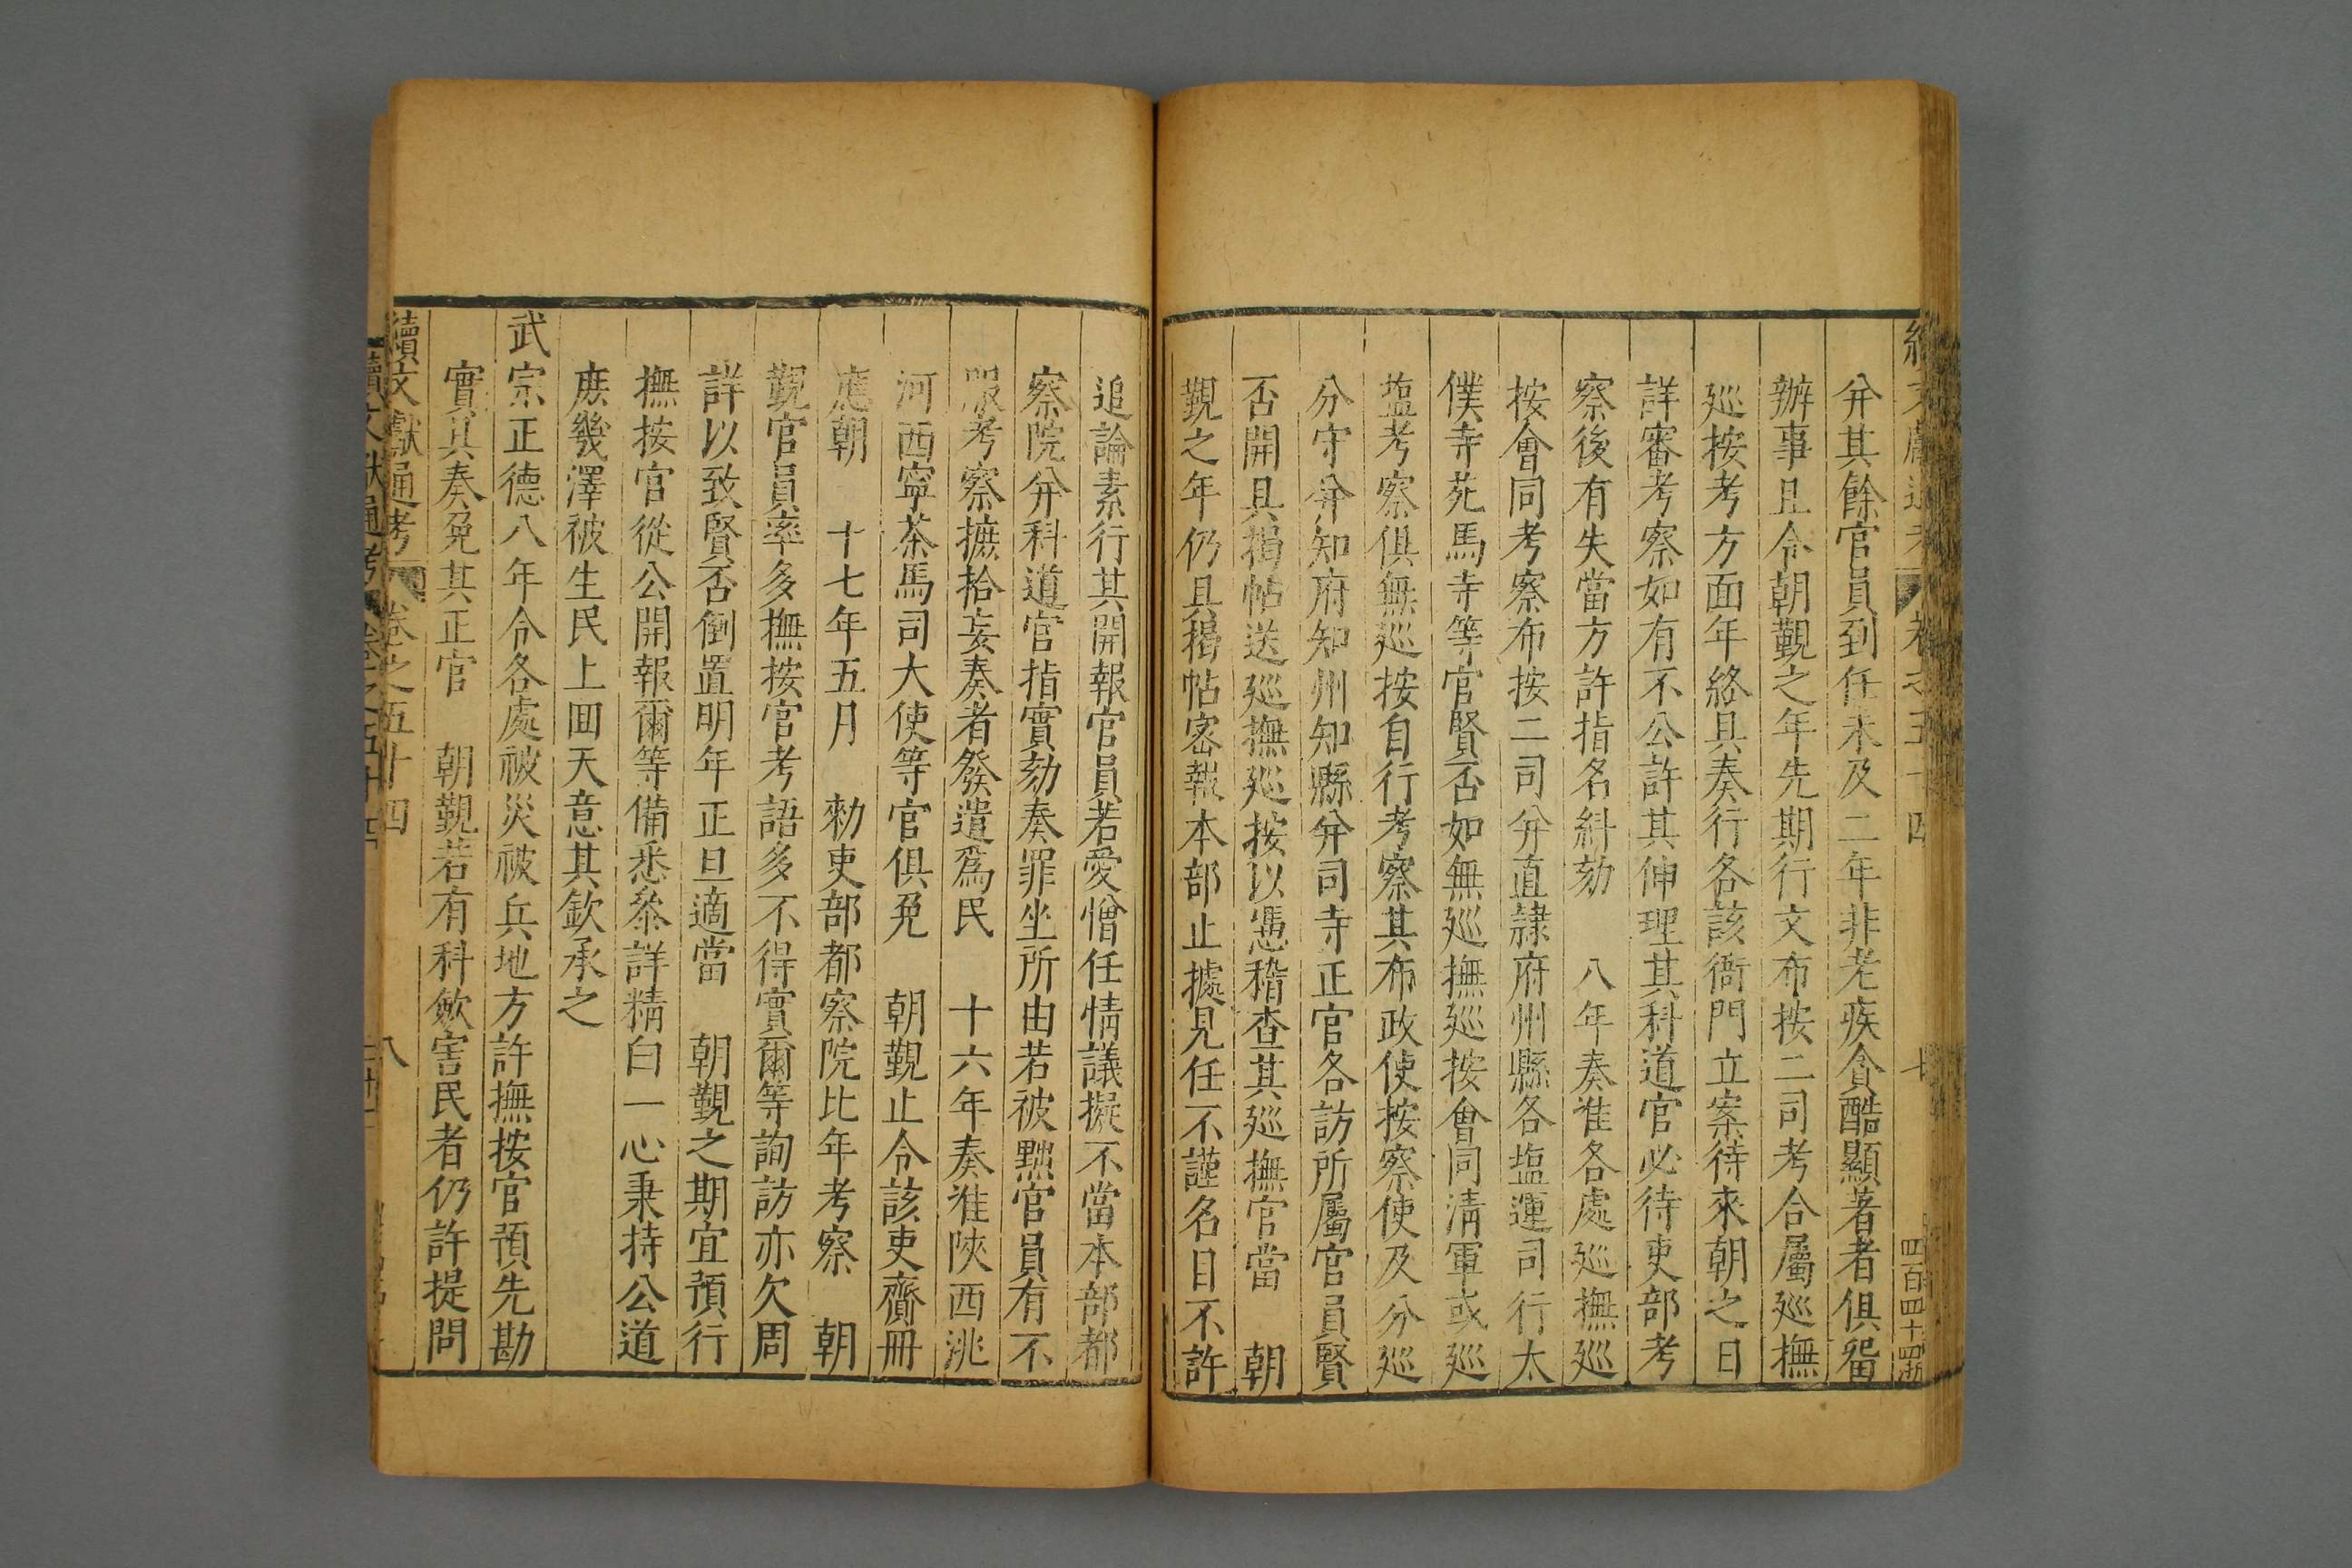 弁其餘官員到任未及二年非老疾貪酷顯著者俱畱
辦事且令朝覲之年先期行文布按二司考合屬巡撫
巡按考方面年終具奏行各該衙門立案待來朝之日
詳審考察如有不公許其伸理其科道官必待吏部考
察後有失當方許指名糾劾　八年奏准各處巡撫巡
按會同考察布按二司分直隷府州縣各塩運司行太
僕寺苑馬寺等官賢否如無巡撫巡按會同淸軍或巡
塩考察俱無巡按自行考察其布政使按察使及分巡
分守分知府知州知縣分司寺正官各訪所屬官員賢
否開具揭帖送巡撫巡按以憑稽查其巡撫官當　朝
覲之年仍具揭帖密報本部止據見任不謹名目不許
追論素行其開報官員若愛憎任情議擬不當本部都
察院弁科道官指實劾奏罪坐所由若被黜官員有不
服考察摭拾妄奏者發遣爲民　十六年奏准陝西洮
河西寧茶馬司大使等官俱免　朝覲止令該吏齎冊
應朝　十七年五月　勑吏部都察院比年考察　朝
覲官員率多撫按官考語多不得實爾等詢訪亦欠周
詳以致賢否倒置明年正旦適當　朝覲之期宜預行
撫按官從公開報爾等備悉叅詳精白一心秉持公道
庶幾澤被生民上囬天意其欽承之
武宗正德八年令各處被災被兵地方許撫按官預先勘
實具奏免其正官　朝覲若有科斂害民者仍許提問
續文獻通考　卷之五十四　八